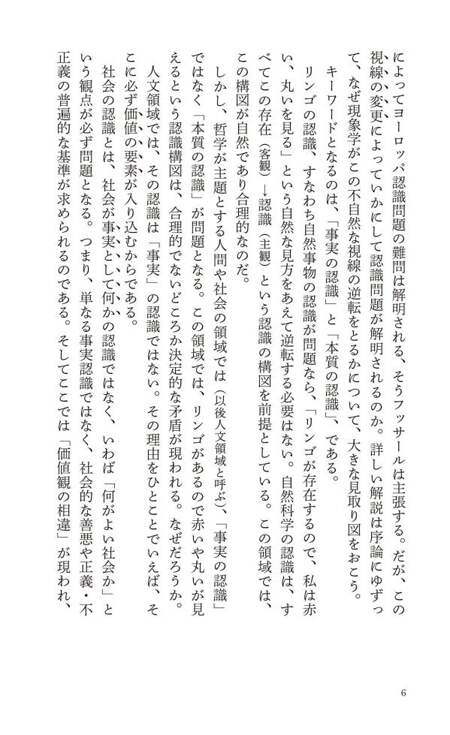 によってヨーロッパ認識問題の難問は解明される、そうフッサールは主張する。だが、この
視線の変更によっていかにして認識問題が解明されるのか。詳しい解説は序論にゆずっ
て、なぜ現象学がこの不自然な視線の逆転をとるかについて、大きな見取り図をおこう。
キーワードとなるのは、「事実の認識」と「本質の認識」、である。
リンゴの認識、すなわち自然事物の認識が問題なら、「リンゴが存在するので、私は赤
い、丸いを見る」という自然な見方をあえて逆転する必要はない。自然科学の認識は、す
べてこの存在（客観）→認識（主観）という認識の構図を前提としている。この領域では、
この構図が自然であり合理的なのだ。
しかし、哲学が主題とする人間や社会の領域では（以後人文領域と呼ぶ）、「事実の認識」
ではなく「本質の認識」が問題となる。この領域では、リンゴがあるので赤いや丸いが見
えるという認識構図は、合理的でないどころか決定的な矛盾が現われる。なぜだろうか。
人文領域では、その認識は「事実」の認識ではない。その理由をひとことでいえば、そ
こに必ず価値の要素が入り込むからである。
社会の認識とは、社会が事実として何かの認識ではなく、いわば「何がよい社会か」と
いう観点が必ず問題となる。つまり、単なる事実認識ではなく、社会的な善悪や正義・不
正義の普遍的な基準が求められるのである。そしてここでは「価値観の相違」が現われ、
6